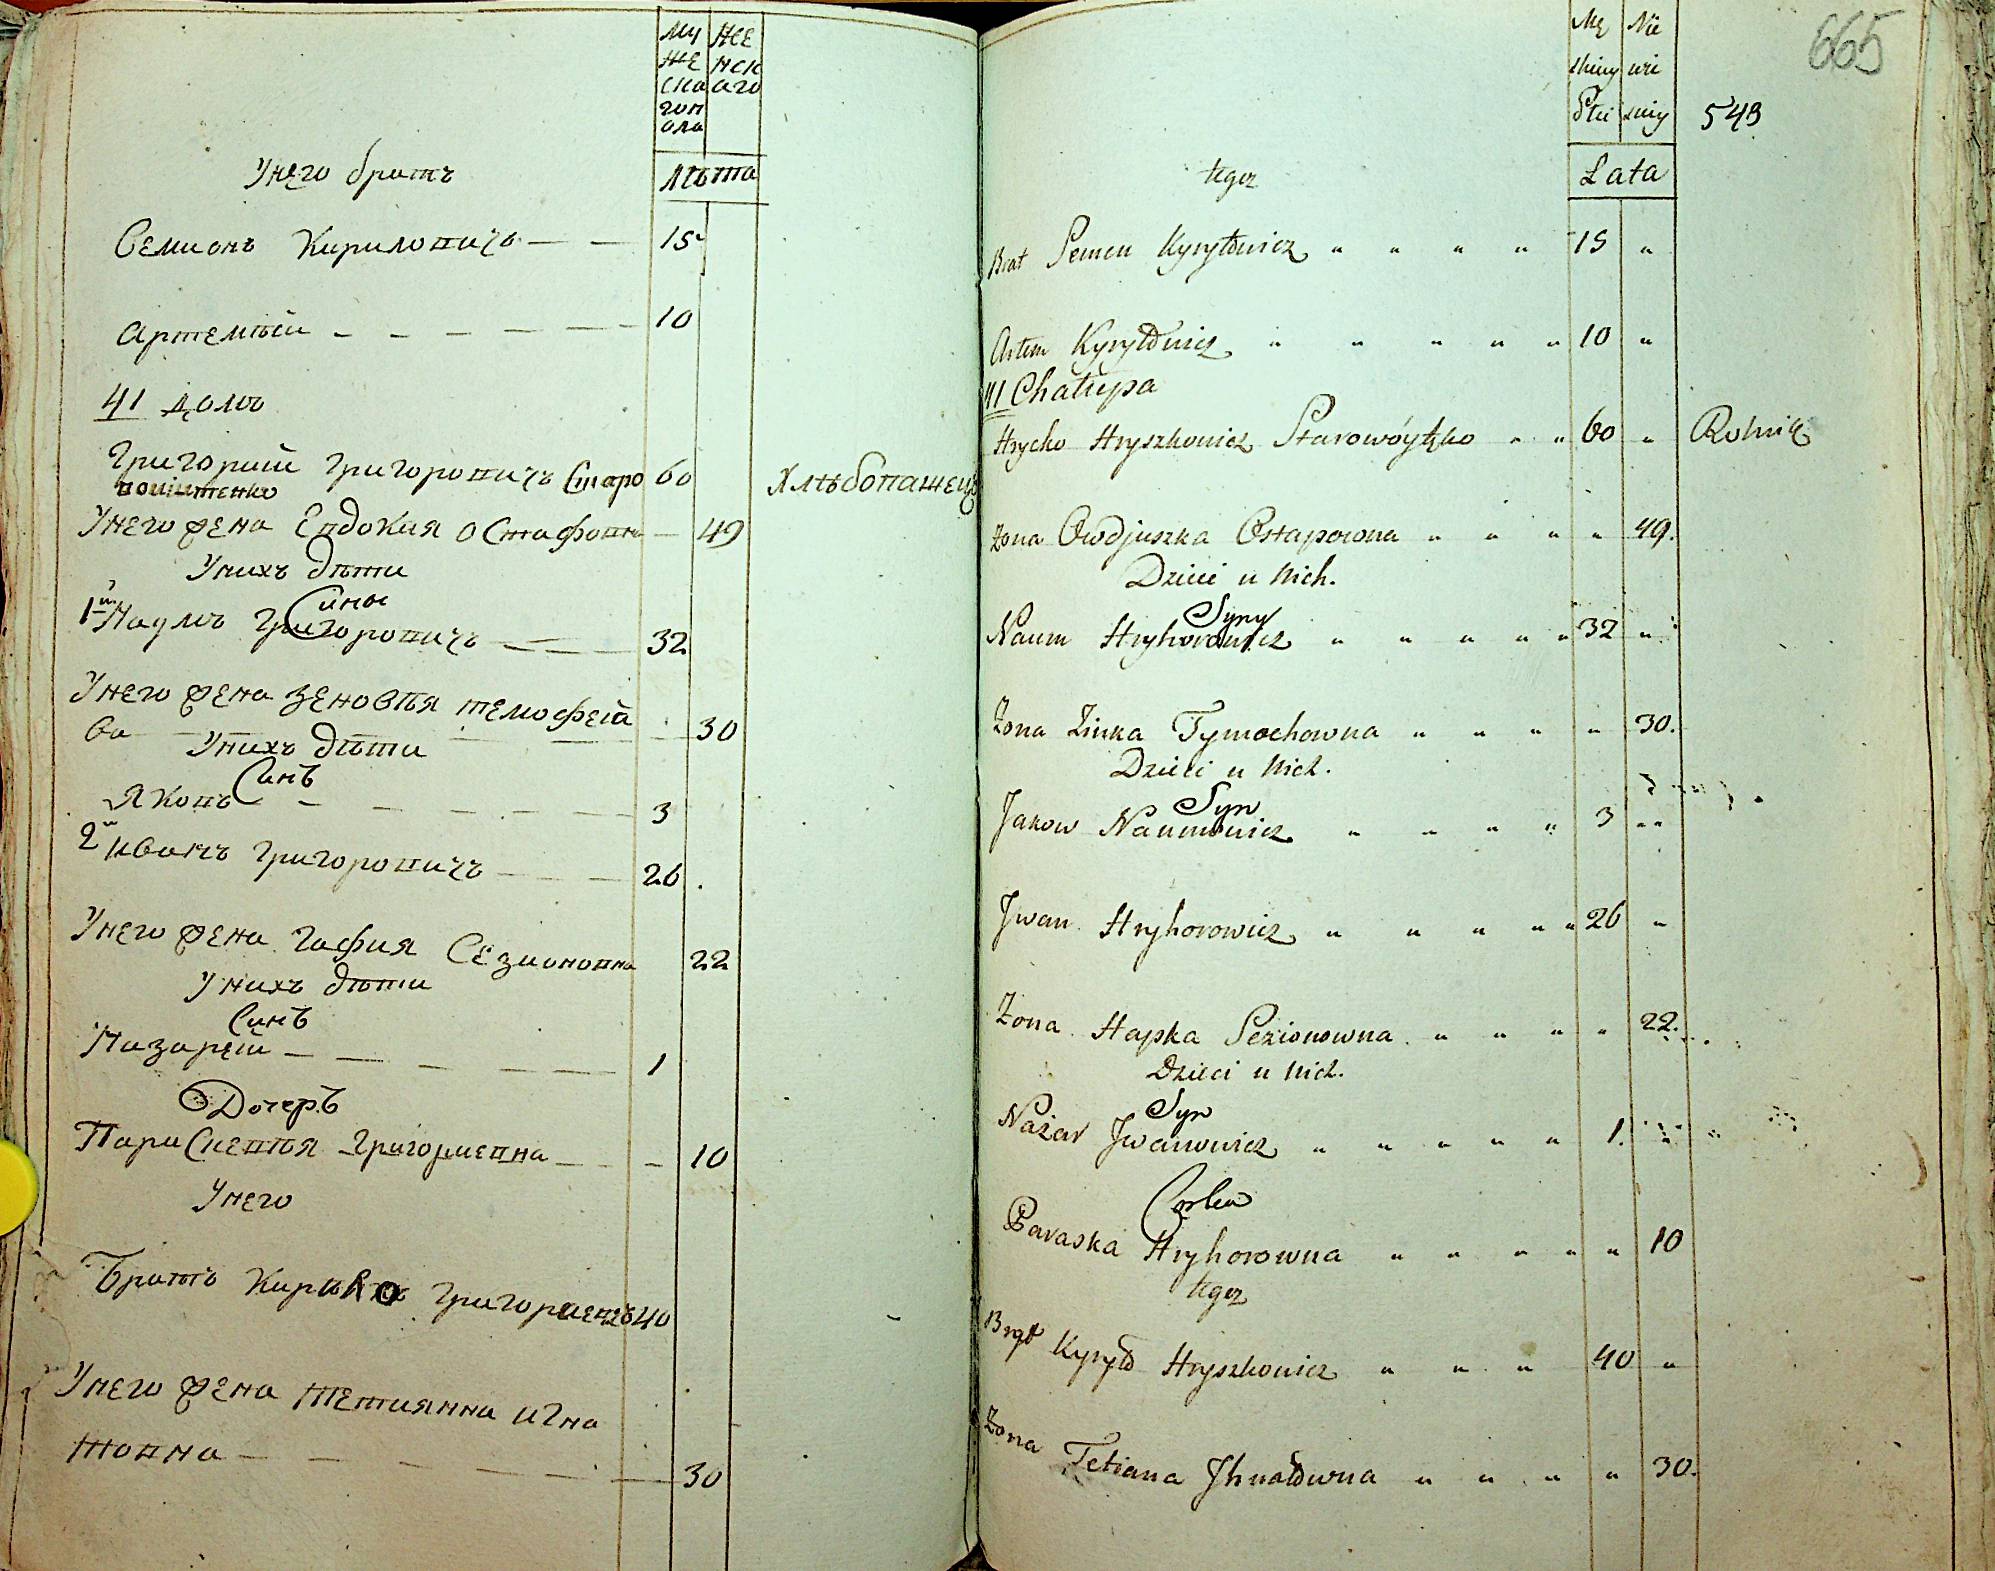 Му Же ско гоп ола
Же нск аго
лѣта
Унего братъ
Семионъ Кириловичъ 15
Артемѣй 10
41 домъ
Григорий Григоровичъ Старо 60 Хлѣбопашецъ
войтенко
Унего жена Евдокия Остафовна 49
Унихъ дѣти
Сины
1й Наумъ Григоровичъ 32
Унего жена Зеновѣя темофеѣ
ва 30
Унихъ дѣти
Синъ
Яковъ 3
2й Иванъ Григоровичъ 26
Унего жена Гафия Сезионовна 22
Унихъ дѣти
Синъ
Назарѣй 1
Дочеръ
Параскевѣя Григориевна 10
Унего
Братъ Кирило Григориевичъ 40
Унего жена тетиянна игна
товна 30
665
Mę skiey Płci
Nie wie sciey
543
Lata
tegoz
Brat Semen Kyryłowicz " " " " 15 "
Artem Kyryłowicz " " " " " 10 "
41 Chałupa
Hrycko Hryszkowicz Starowóytko " " 60 " Rolnik
Żona Owdjuszka Ostapowna " " " " 49.
Dzieci u Nich.
Syny
Naum Hryhorowicz " " " " " 32 "
Żona Zinka Tymochowna " " " " 30.
Dzieci u Nich.
Syn
Jakow Naumowicz " " " " 3 "
Jwan Hryhorowicz " " " " " 26 "
Żona Hapka Sezionowna " " " " 22.
Dzieci u Nich.
Syn
Nazar Jwanowicz " " " " " 1. "
Corka
Paraska Hryhorowna " " " " " 10
tegoz
Brat Kyryło Hryszkowicz " " " 40 "
Żona Tetiana Jhnatowna " " " " 30.